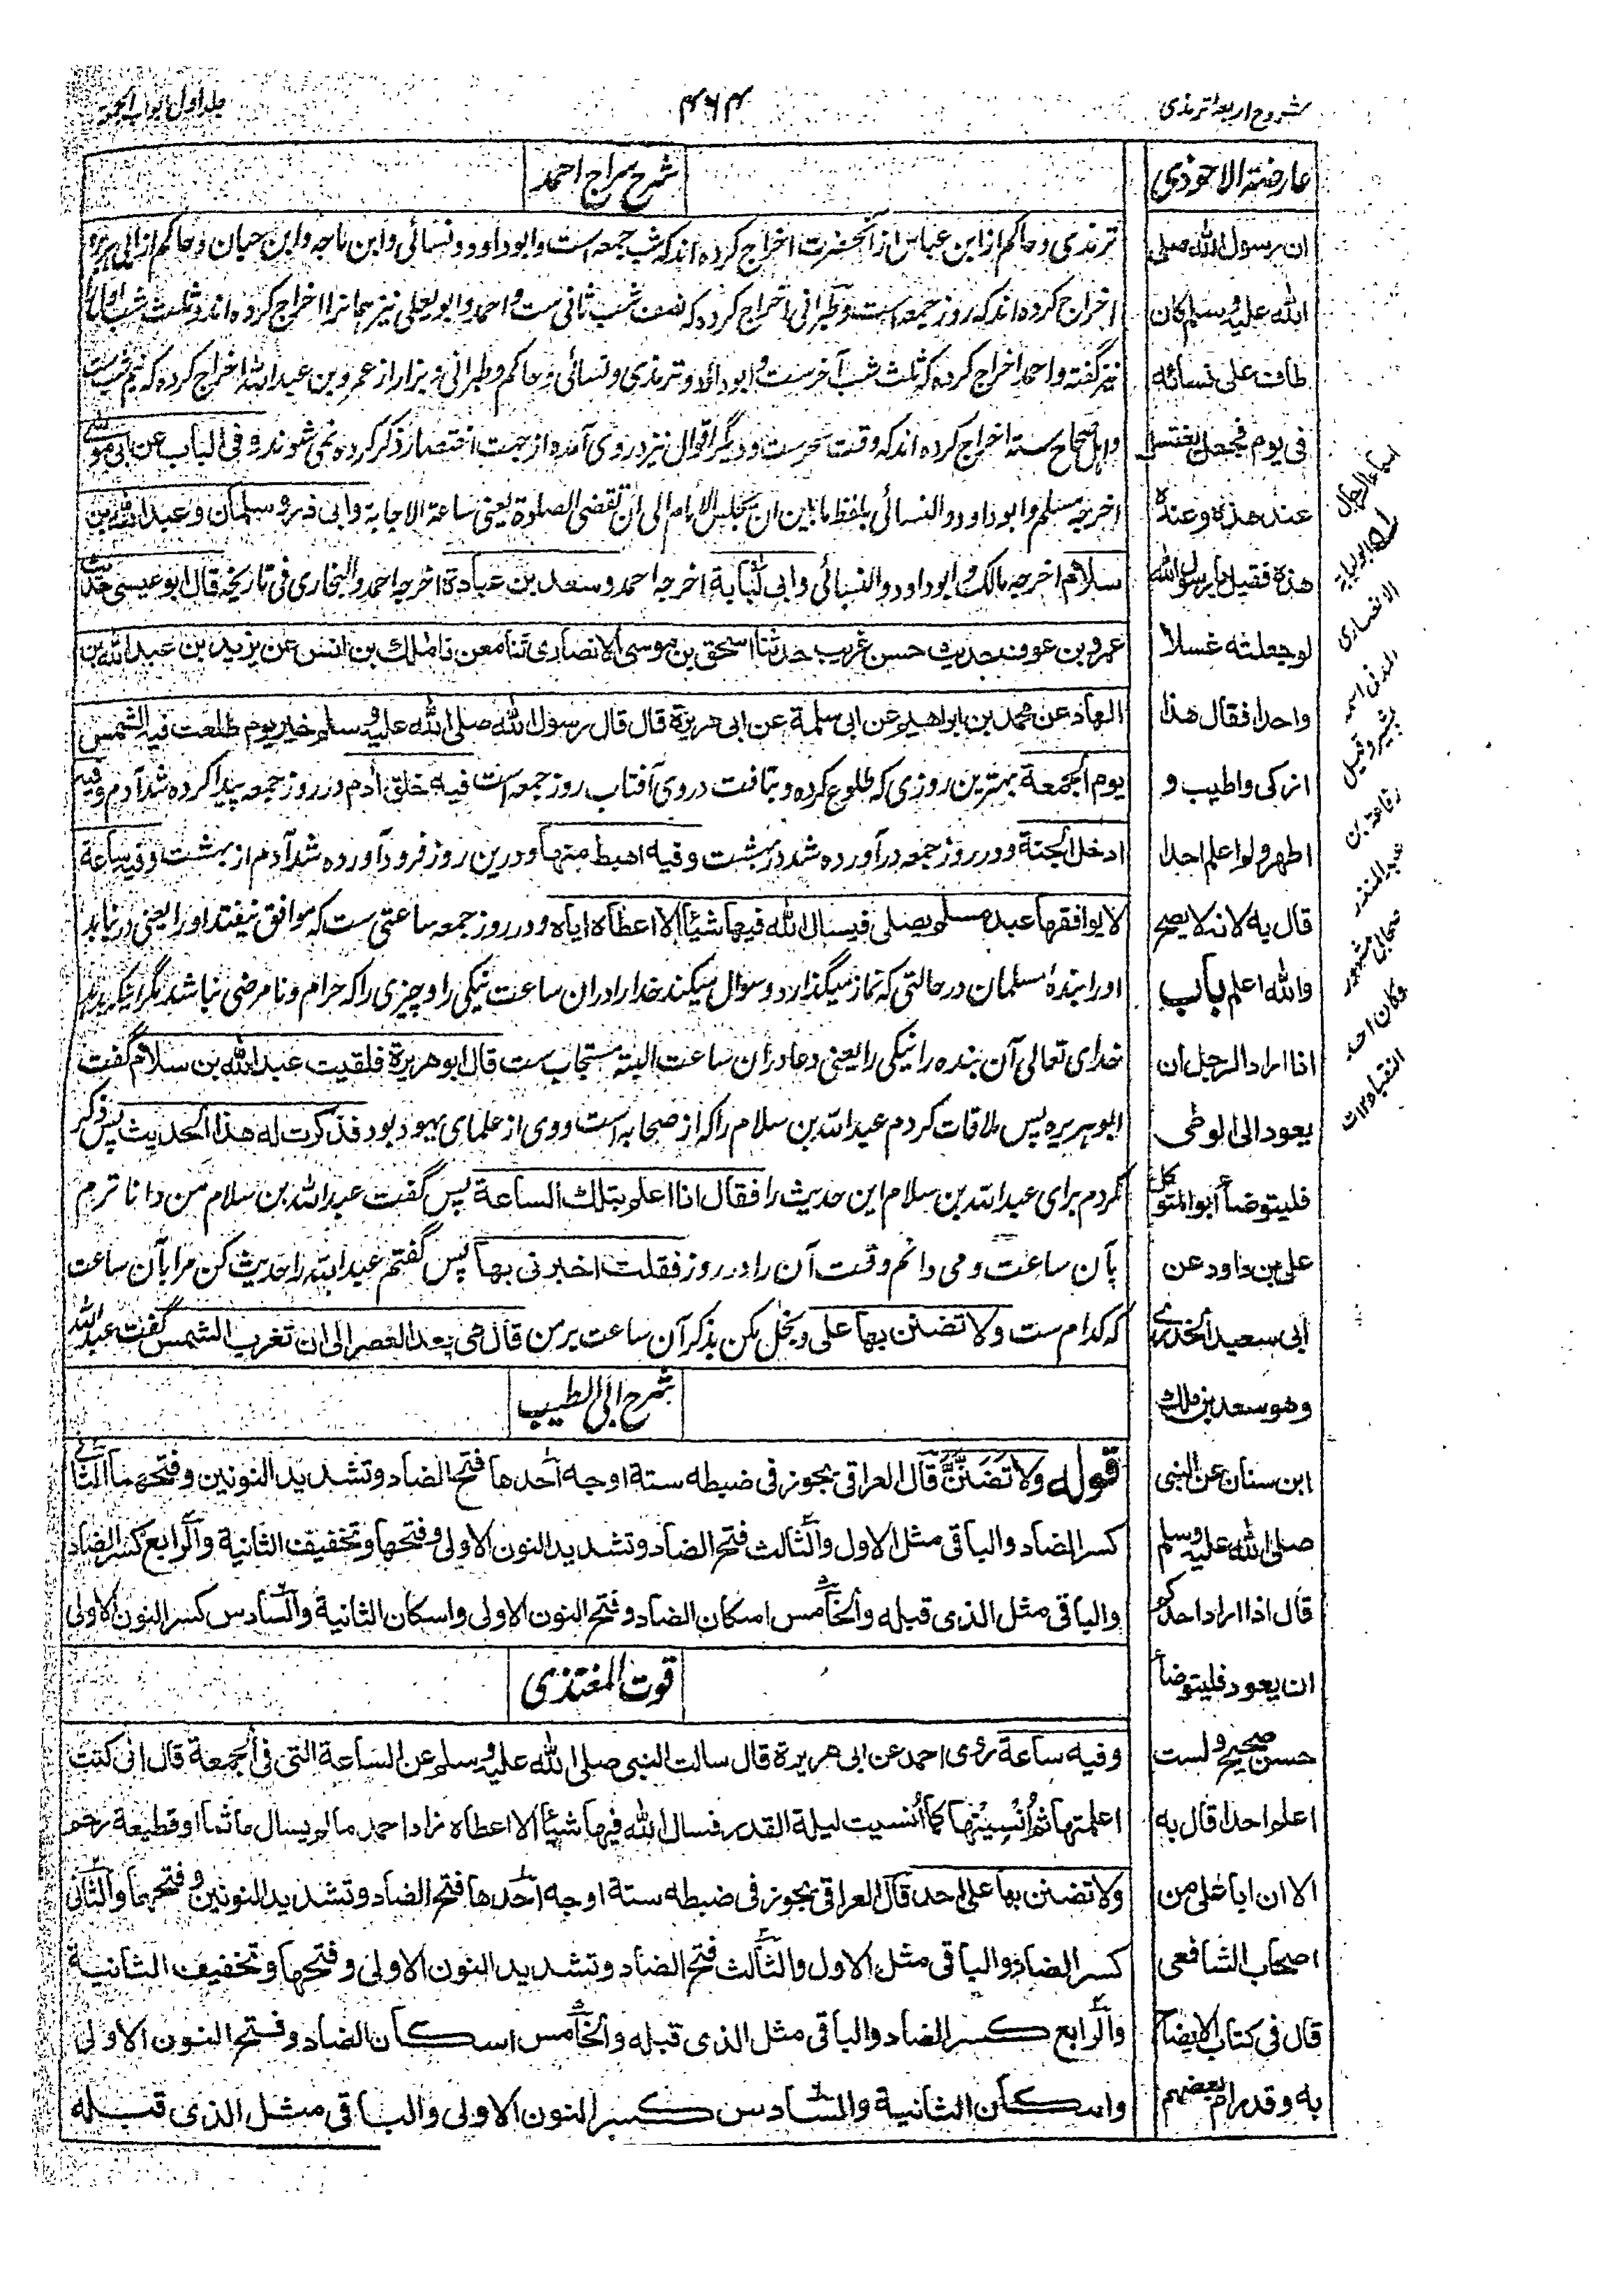 شروح اربعۂ ترمذی
۴۶۴
جلد اول ابواب الجمعة
عارضة الاحوذی
ان رسول الله صلی
الله علیه وسلم کان
طاف علی نسائه
فی یوم فجعل یغتسل
عند هذه وعند
هذه فقیل یا رسول الله
لو جعلته غسلا
واحدا فقال هذا
ازکی واطیب و
اطهر ولو اعلم احدا
قال به لانه لا یصح
والله اعلم باب
اذا اراد الرجل ان
یعود الی الوطی
فلیتوضأ ابو المتوکل
علی بن داود عن
ابی سعید الخدری
وهو سعد بن ملک
ابن سنان عن النبی
صلی الله علیه وسلم
قال اذا اراد احدکم
ان یعود فلیتوضأ
حسن صحیح ولست
اعلم احدا قال به
الا ان ابا علی من
اصحاب الشافعی
قال فی کتاب الایضاح
به وقد رام بعضهم
شرح سراج احمد
ترمذی وحاکم از ابن عباس از آنحضرت اخراج کرده اند که شب جمعه است وابوداود ونسائی وابن ماجه وابن حبان وحاکم از ابی هریره
اخراج کرده اند که روز جمعه است وطبرانی اخراج کرده که نصف شب ثانی ست واحمد وابو یعلی نیز همانرا اخراج کرده اند وثلث شب اول را
نیز گفته واحمد اخراج کرده که ثلث شب آخرست وابوداود وترمذی ونسائی وحاکم وطبرانی وبزار از عمرو بن عبدالله اخراج کرده که نیم شب ست
واهل صحاح سته اخراج کرده اند که وقت سحرست ودیگر اقوال نیز در وی آمده از جهت اختصار ذکر کرده نمی شوند وفی الباب عن ابی موسی
اخرجه مسلم وابوداود والنسائی بلفظ ما بین ان یجلس الامام الی ان تقضی الصلوة یعنی ساعة الاجابة وابی ذر وسلمان وعبد الله بن
سلام اخرجه مالک وابوداود والنسائی وابی لبابة اخرجه احمد وسعد بن عبادة اخرجه احمد والبخاری فی تاریخه قال ابو عیسی حدیث
عمرو بن عوف حدیث حسن غریب حدثنا اسحق بن موسی الانصاری ثنا معن نا ملک بن انس عن یزید بن عبد الله بن
الهاد عن محمد بن ابراهیم عن ابی سلمة عن ابی هریرة قال قال رسول الله صلی الله علیه وسلم خیر یوم طلعت فیه الشمس
یوم الجمعة بهترین روزی که طلوع کرده وتافت در وی آفتاب روز جمعه است فیه خلق آدم در روز جمعه پیدا کرده شد آدم وفیه
ادخل الجنة ودر روز جمعه درآورده شد در بهشت وفیه اهبط منها ودرین روز فرود آورده شد آدم از بهشت وفیه ساعة
لا یوافقها عبد مسلم یصلی فیسال الله فیها شیئا الا اعطاه ایاه ودر روز جمعه ساعتی ست که موافق نیفتد او را یعنی در نیابد
او را بندۀ مسلمان در حالتی که نماز میگذارد وسوال میکند خدا را دران ساعت نیکی را وچیزی را که حرام ونامرضی نباشد مگر اینکه بدهد
خدای تعالی آن بنده را نیکی را یعنی دعا دران ساعت البته مستجاب ست قال ابو هریرة فلقیت عبد الله بن سلام گفت
ابو هریره پس ملاقات کردم عبدالله بن سلام را که از صحابه است ووی از علمای یهود بود فذکرت له هذا الحدیث پس ذکر
کردم برای عبدالله بن سلام این حدیث را فقال انا اعلم بتلک الساعة پس گفت عبدالله بن سلام من دانا ترم
بآن ساعت ومی دانم وقت آن را در روز فقلت اخبرنی بها پس گفتم عبدالله را حدیث کن مرا بآن ساعت
که کدام ست ولا تضنن بها علی وبخل مکن بذکر آن ساعت بر من قال هی بعد العصر الی ان تغرب الشمس گفت عبدالله
شرح ابی الطیب
قوله ولا تضنن قال العراقی یجوز فی ضبطه ستة اوجه احدها فتح الضاد وتشدید النونین وفتحهما الثانی
کسر الضاد والباقی مثل الاول والثالث فتح الضاد وتشدید النون الاولی وفتحها وتخفیف الثانیة والرابع کسر الضاد
والباقی مثل الذی قبله والخامس اسکان الضاد وفتح النون الاولی واسکان الثانیة والسادس کسر النون الاولی
قوت المغتذی
وفیه ساعة روی احمد عن ابی هریرة قال سالت النبی صلی الله علیه وسلم عن الساعة التی فی الجمعة قال انی کنت
اعلمتها ثم اُنْسِیْتُها کما اُنسیت لیلة القدر فسال الله فیها شیئا الا اعطاه زاد احمد ما لم یسال ماثما او قطیعة رحم
ولا تضنن بها علی احد قال العراقی یجوز فی ضبطه ستة اوجه احدها فتح الضاد وتشدید النونین وفتحهما والثانی
کسر الضاد والباقی مثل الاول والثالث فتح الضاد وتشدید النون الاولی وفتحها وتخفیف الثانیة
والرابع کسر الضاد والباقی مثل الذی قبله والخامس اسکان الضاد وفتح النون الاولی
واسکان الثانیة والسادس کسر النون الاولی والباقی مثل الذی قبله
اسماء الرجال
ابو لبابة
الانصاری
المدنی اسمه
بشیر وقیل
رفاعة بن
عبد المنذر
صحابی مشهور
وکان احد
النقباء